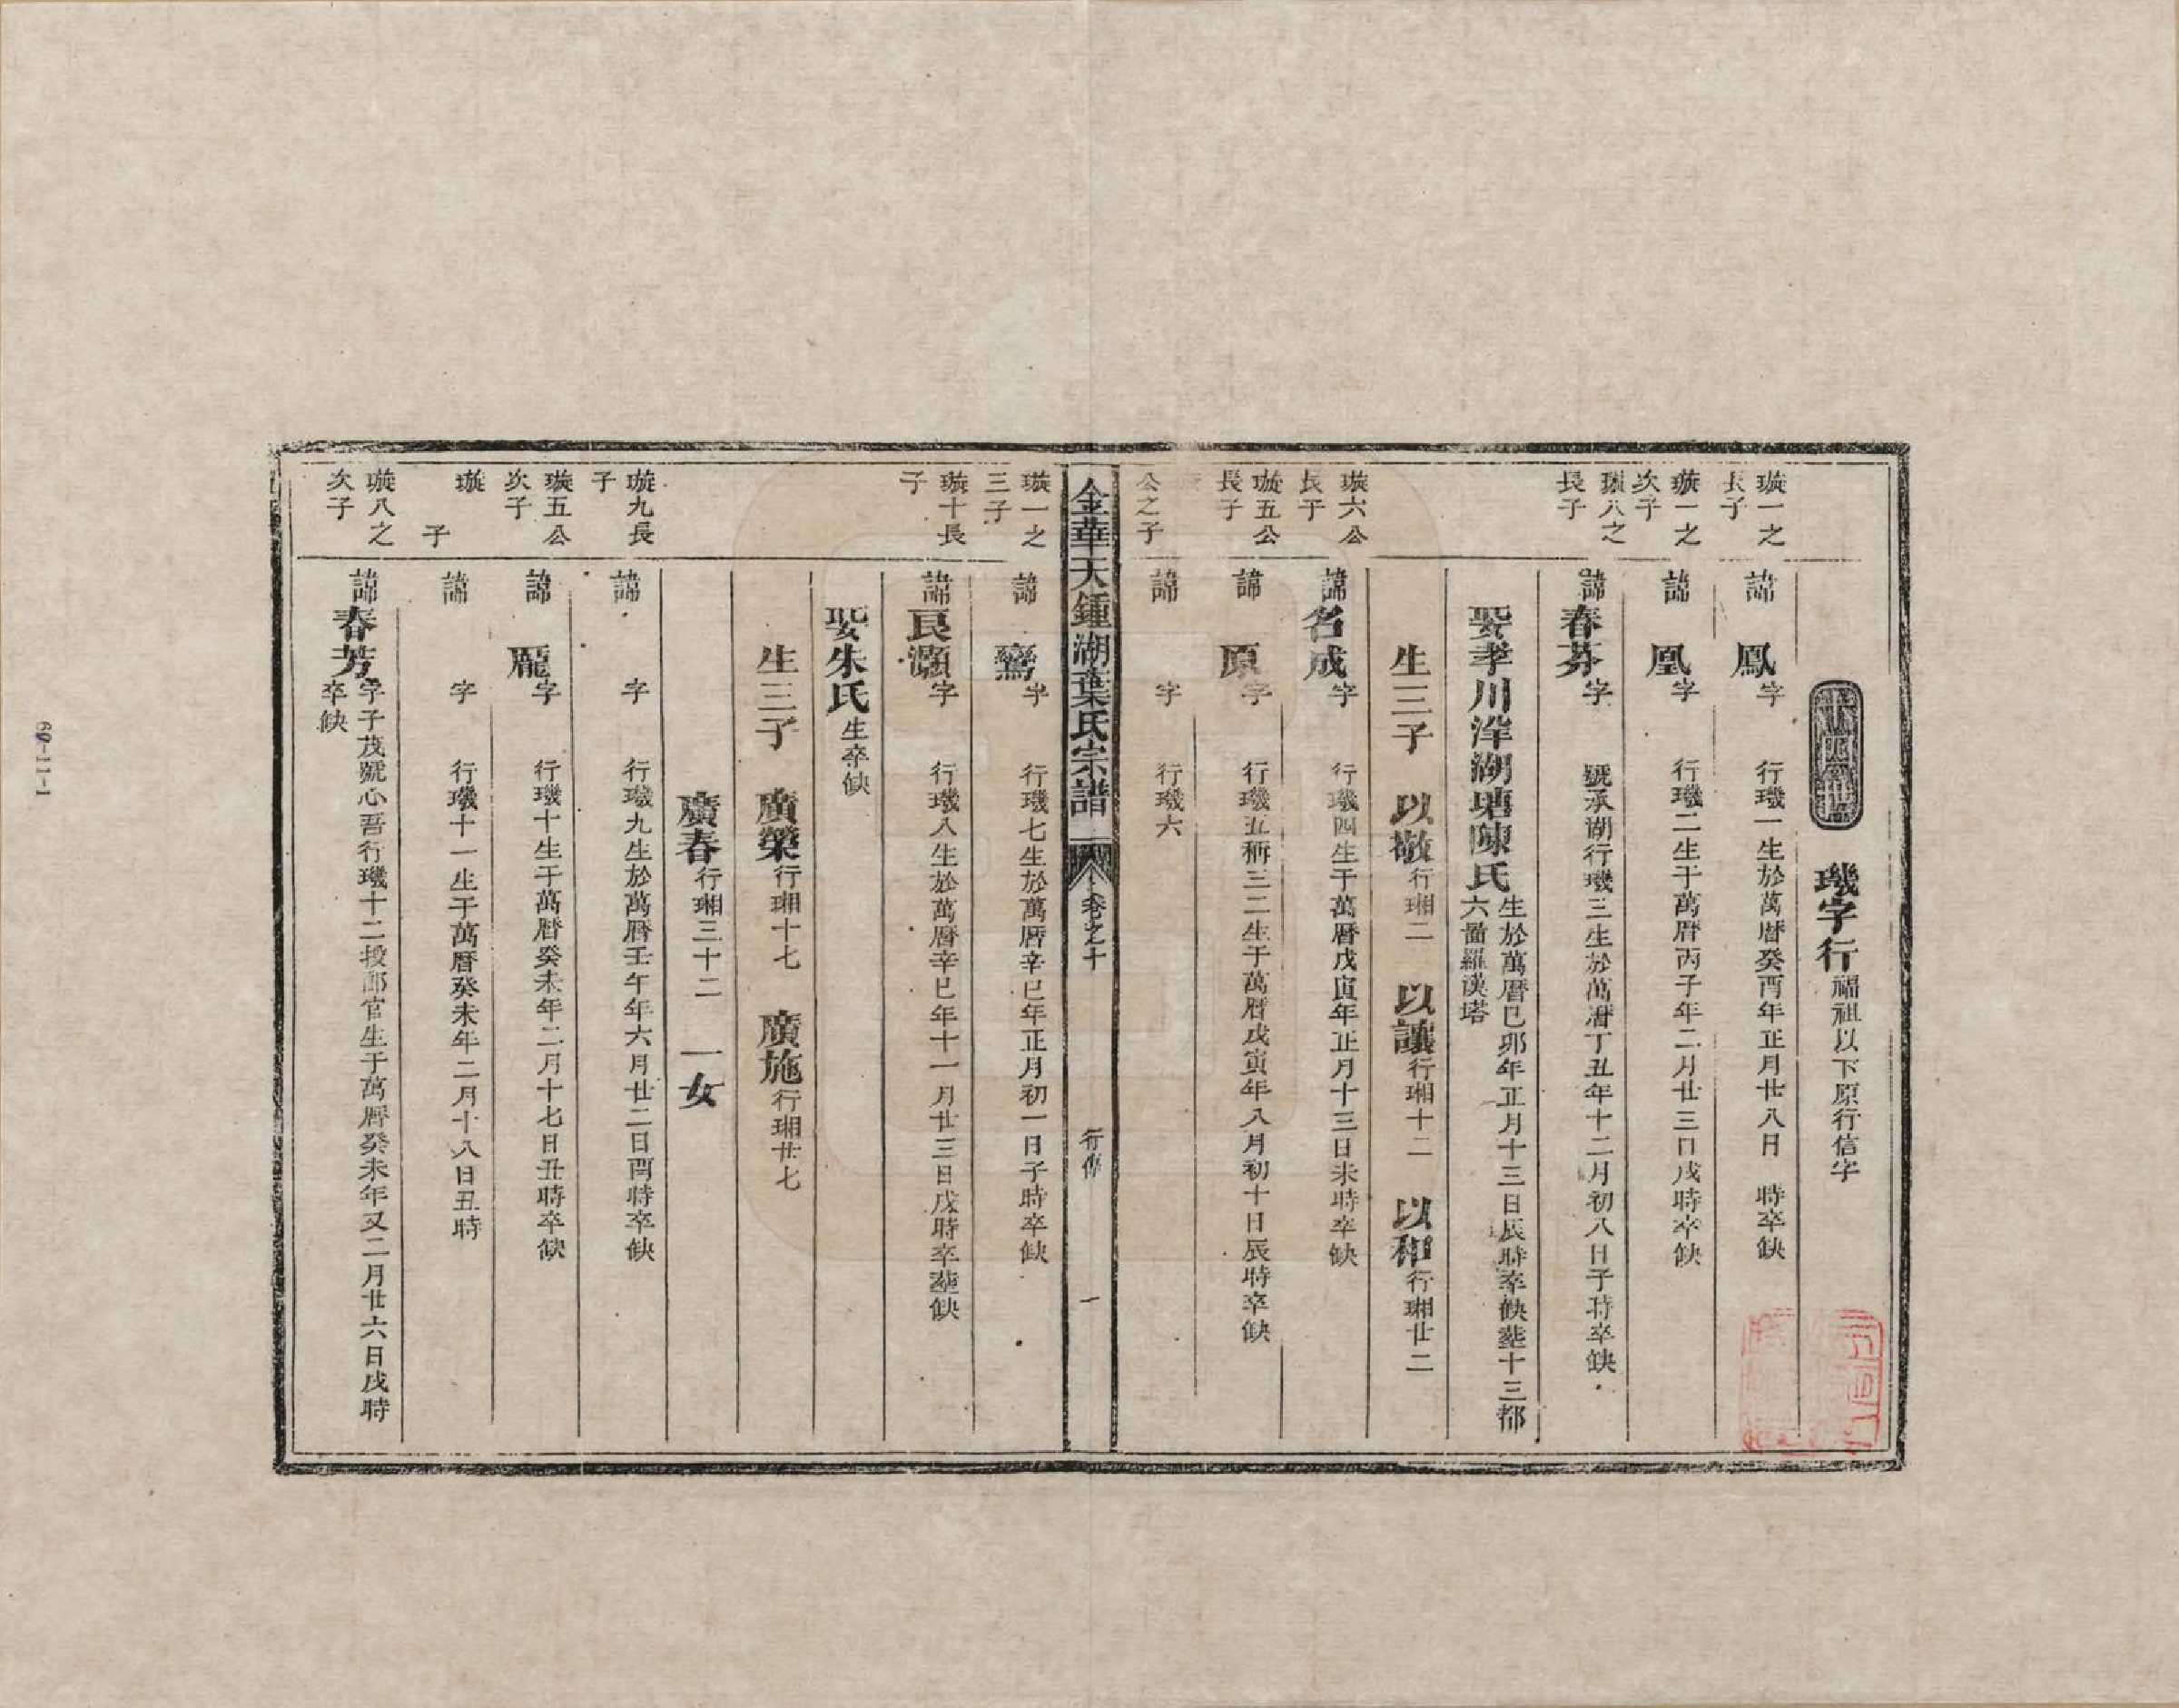 十四世　璣字行 福祖以下原行信字
璇一之長子
諱鳳字　行璣一生於萬曆癸酉年正月廿八日　時卒缺
璇一之次子
諱凰字　行璣二生于萬曆丙子年二月廿三日戌時卒缺
璇八之長子
諱春芬字　號承湖行璣三生於萬曆丁丑年十二月初八日子時卒缺
娶孝川泮湖塘陳氏 生於萬曆己卯年正月十三日辰時卒缺塟十三都
六啚羅漢塔
生三子　以敬 行瑚二　以讓 行瑚十二　以和 行瑚廿二
璇六公長子
諱名成字　行璣四生于萬曆戊寅年正月十三日未時卒缺
璇五公長子
諱原字　行璣五稱三二生于萬曆戊寅年八月初十日辰時卒缺
公之子
諱　字　行璣六
金華天鍾湖葉氏宗譜　卷之十　行傳　一
璇一之三子
諱鸞字　行璣七生於萬曆辛巳年正月初一日子時卒缺
璇十長子
諱良灝字　行璣八生於萬曆辛巳年十一月廿三日戌時卒塟缺
娶朱氏 生卒缺
生三子　廣榮 行瑚十七　廣施 行瑚廿七
廣春 行瑚三十二　一女
璇九長子
諱　字　行璣九生於萬曆壬午年六月廿二日酉時卒缺
璇五公次子
諱龎字　行璣十生于萬曆癸未年二月十七日丑時卒缺
璇　子
諱　字　行璣十一生于萬曆癸未年二月十八日丑時
璇八之次子
諱春芳 字子茂號心吾行璣十二授郎官生于萬曆癸未年又二月廿六日戌時
卒缺
69-11-1